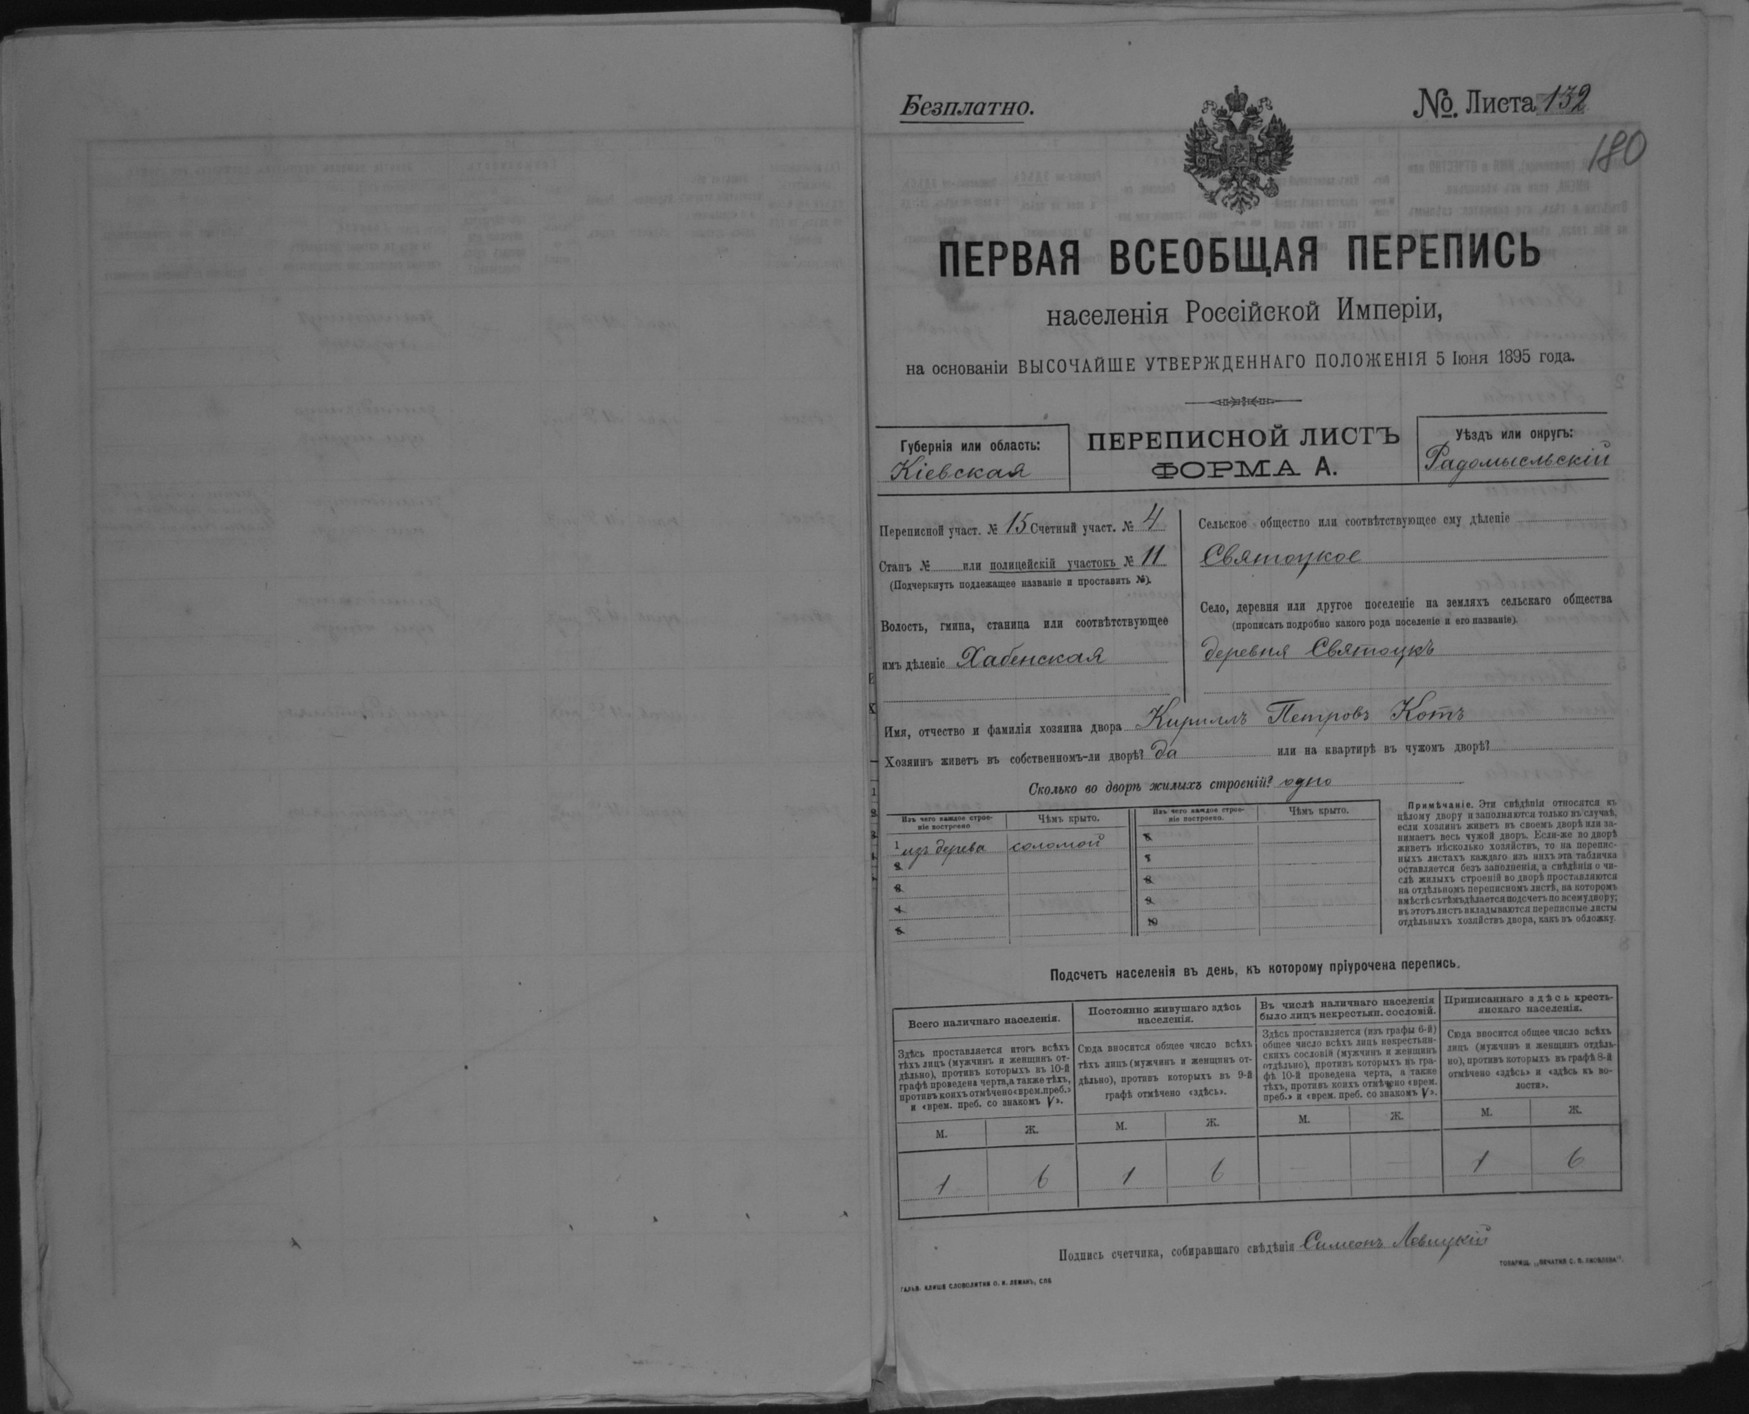 Безплатно.
№. Листа 132
180
ПЕРВАЯ ВСЕОБЩАЯ ПЕРЕПИСЬ
населенія Россійской Имперіи,
на основаніи ВЫСОЧАЙШЕ УТВЕРЖДЕННАГО ПОЛОЖЕНІЯ 5 Іюня 1895 года.
Губернія или область:
Кіевская
ПЕРЕПИСНОЙ ЛИСТЪ
ФОРМА А.
Уѣздъ или округъ:
Радомысльскій
Переписной участ. № 15 Счетный участ. № 4
Станъ № или полицейскій участокъ № 11
(Подчеркнуть подлежащее названіе и проставить №).
Волость, гмина, станица или соотвѣтствующее
имъ дѣленіе Хабенская
Сельское общество или соотвѣтствующее ему дѣленіе
Святоцкое
Село, деревня или другое поселеніе на земляхъ сельскаго общества
(прописать подробно какого рода поселеніе и его названіе).
деревня Святоцкъ
Имя, отчество и фамилія хозяина двора Кириллъ Петровъ Котъ
Хозяинъ живетъ въ собственномъ-ли дворѣ? да или на квартирѣ въ чужомъ дворѣ?
Сколько во дворѣ жилыхъ строеній? одно
Изъ чего каждое строе-
ніе построено.
Чѣмъ крыто.
Изъ чего каждое строе-
ніе построено.
Чѣмъ крыто.
1 изъ дерева соломой
2
3
4
5
6
7
8
9
10
Примѣчаніе. Эти свѣдѣнія относятся къ
цѣлому двору и заполняются только въ случаѣ,
если хозяинъ живетъ въ своемъ дворѣ или за-
нимаетъ весь чужой дворъ. Если-же во дворѣ
живетъ нѣсколько хозяйствъ, то на перепис-
ныхъ листахъ каждаго изъ нихъ эта табличка
оставляется безъ заполненія, а свѣдѣнія о чи-
слѣ жилыхъ строеній во дворѣ проставляются
на отдѣльномъ переписномъ листѣ, на которомъ
вмѣстѣ съ тѣмъ дѣлается подсчетъ по всему двору;
въ этотъ листъ вкладываются переписные листы
отдѣльныхъ хозяйствъ двора, какъ въ обложку.
Подсчетъ населенія въ день, къ которому пріурочена перепись.
Всего наличнаго населенія.
Здѣсь проставляется итогъ всѣхъ
тѣхъ лицъ (мужчинъ и женщинъ от-
дѣльно), противъ которыхъ въ 10-й
графѣ проведена черта, а также тѣхъ,
противъ коихъ отмѣчено «врем. преб.»
и «врем. преб. со знакомъ V».
Постоянно живущаго здѣсь
населенія.
Сюда вносится общее число всѣхъ
тѣхъ лицъ (мужчинъ и женщинъ от-
дѣльно), противъ которыхъ въ 9-й
графѣ отмѣчено «здѣсь».
Въ числѣ наличнаго населенія
было лицъ некрестьян. сословій.
Здѣсь проставляется (изъ графы 6-й)
общее число всѣхъ лицъ некрестьян-
скихъ сословій (мужчинъ и женщинъ
отдѣльно), противъ которыхъ въ гра-
фѣ 10-й проведена черта, а также
тѣхъ, противъ коихъ отмѣчено «врем.
преб.» и «врем. преб. со знакомъ V».
Приписаннаго здѣсь кресть-
янскаго населенія.
Сюда вносится общее число всѣхъ
лицъ (мужчинъ и женщинъ отдѣль-
но), противъ которыхъ въ графѣ 8-й
отмѣчено «здѣсь» и «здѣсь въ во-
лости».
М. Ж. М. Ж. М. Ж. М. Ж.
1 6 1 6 — — 1 6
Подпись счетчика, собиравшаго свѣдѣнія Симеонъ Левицкій
ГАЛЬВ. КЛИШЕ СЛОВОЛИТНИ О. И. ЛЕМАНЪ, СПБ
ТОВАРИЩ. „ПЕЧАТНЯ С. П. ЯКОВЛЕВА".